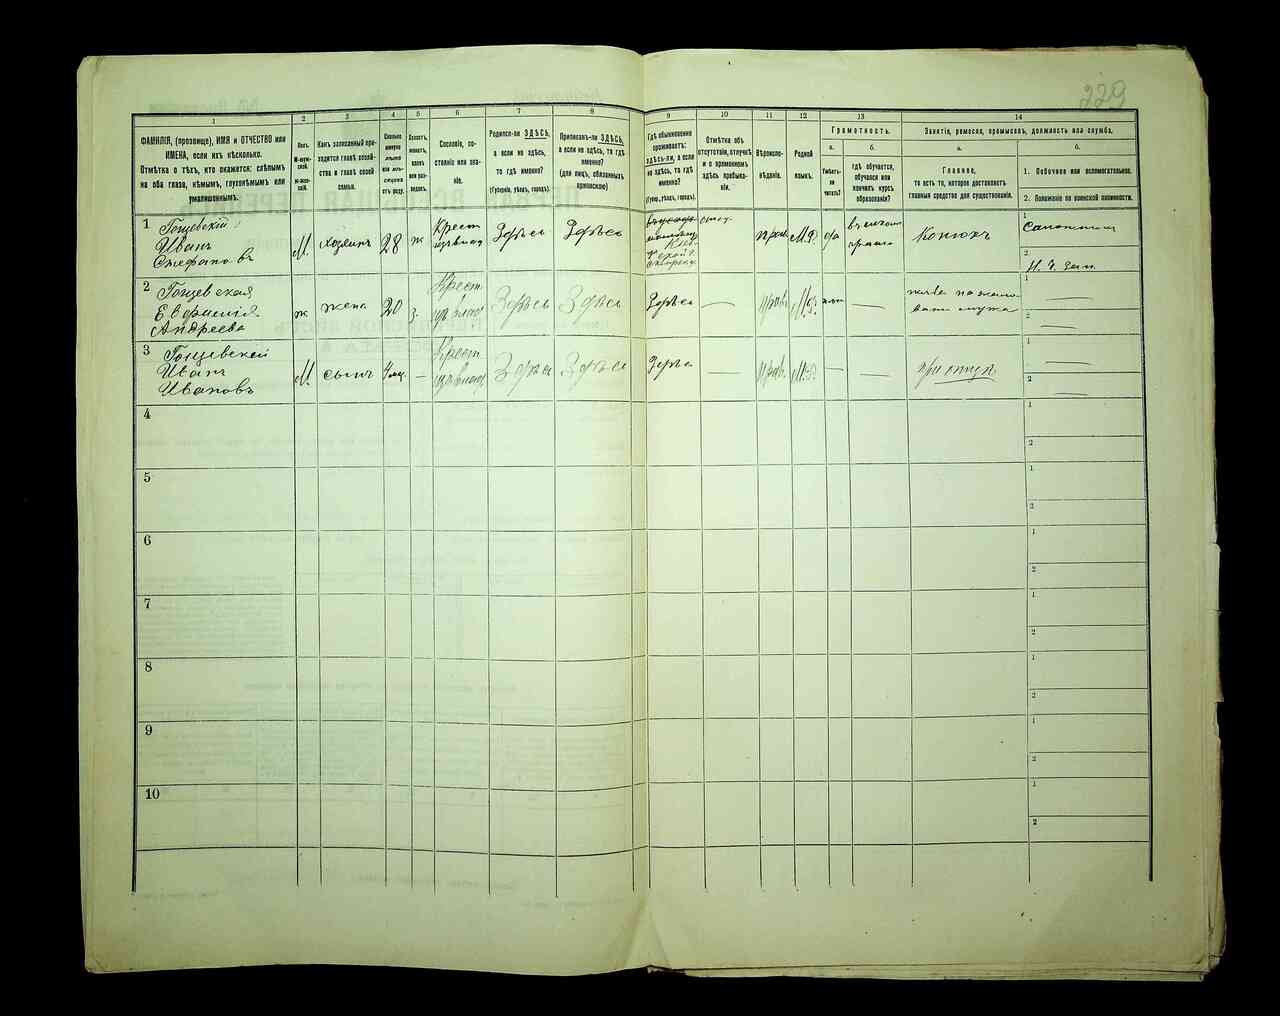 229
1
2
3
4
5
6
7
8
9
10
11
12
13
14
ФАМИЛІЯ, (прозвище), ИМЯ и ОТЧЕСТВО или
ИМЕНА, если ихъ нѣсколько.
Отмѣтка о тѣхъ, кто окажется: слѣпымъ
на оба глаза, нѣмымъ, глухонѣмымъ или
умалишеннымъ.
Полъ.
М-мужской.
Ж-женскій.
Какъ записанный приходится главѣ хозяйства
и главѣ своей
семьи.
Сколько
минуло
лѣтъ
или мѣсяцевъ
отъ роду.
Холостъ,
женатъ,
вдовъ
или разведенъ.
Сословіе, состояніе
или званіе.
Родился-ли ЗДѢСЬ,
а если не здѣсь,
то гдѣ именно?
(Губернія, уѣздъ, городъ).
Приписанъ-ли ЗДѢСЬ,
а если не здѣсь, то гдѣ
именно?
(для лицъ, обязанныхъ
припискою)
Гдѣ обыкновенно
проживаетъ:
здѣсь-ли, а если
не здѣсь, то гдѣ
именно?
(Губер., уѣздъ, городъ).
Отмѣтка объ
отсутствіи, отлучкѣ
и о временномъ
здѣсь пребываніи.
Вѣроисповѣданіе.
Родной
языкъ.
Грамотность.
а.
Умѣетъ-ли
читать?
б.
гдѣ обучается,
обучался или
кончилъ курсъ
образованія?
Занятія, ремесло, промыселъ, должность или служба.
а.
Главное,
то есть то, которое доставляетъ
главныя средства для существованія.
б.
1. Побочное или вспомогательное.
2. Положеніе по воинской повинности.
1
Гощевскій
Иванъ
Стефановъ
М.
хозяинъ
28
ж
Крест
Здѣсь
Здѣсь
отсу.
прав.
М.Р.
да
Конюхъ
1
2
2
Гощевская
Евфимія
Андреева
ж
жена
20
з.
Крест
Здѣсь
Здѣсь
Здѣсь
—
прав.
М.Р.
нѣт
—
мужа
1
—
2
—
3
Гощевскій
Иванъ
Ивановъ
М
сынъ
4 мц.
—
Крест
Здѣсь
Здѣсь
Здѣсь
—
прав.
М.Р.
—
при отцѣ
1
—
2
—
4
1
2
5
1
2
6
1
2
7
1
2
8
1
2
9
1
2
10
1
2